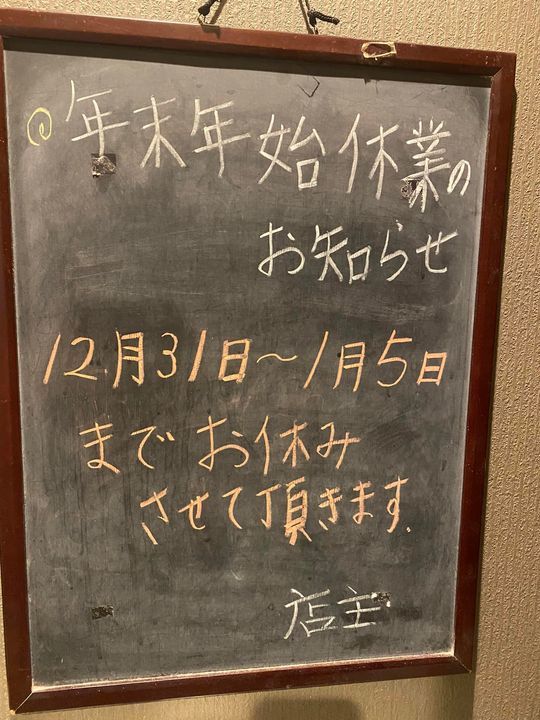 ◎年末年始休業の
お知らせ
12月31日〜1月5日
までお休み
させて頂きます.
店主